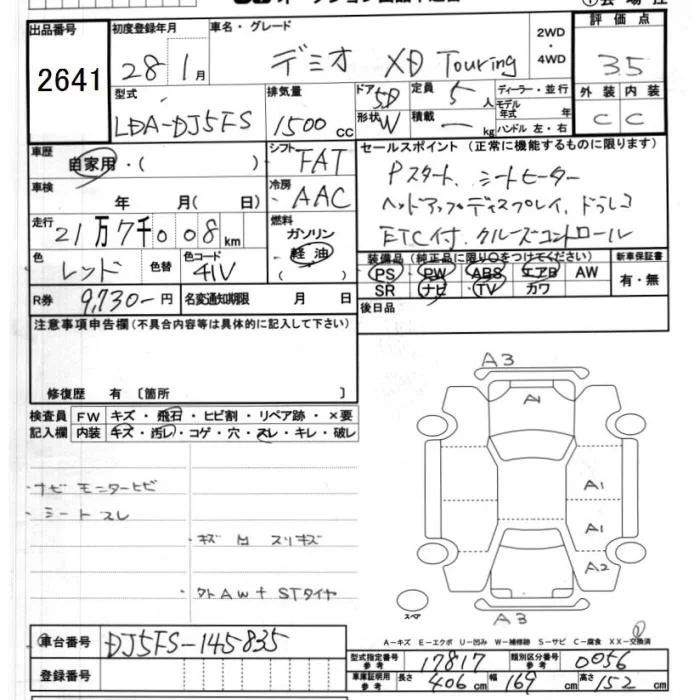 出品番号 2641
初度登録年月 28 1月
車名・グレード デミオ XD Touring
2WD・4WD
評価点 3.5
型式 LDA-DJ5FS
排気量 1500 cc
ドア 5D 形状 W
定員 5 人
積載 ー kg
ディーラー・並行
モデル年式 年
ハンドル 左・右
外装 C 内装 C
車歴 自家用・( )
シフト FAT
セールスポイント (正常に機能するものに限ります)
Pスタート、シートヒーター
ヘッドアップディスプレイ、ドラレコ
ETC付、クルーズコントロール
車検 年 月( 日)
冷房 AAC
走行 21万7千008km
燃料 ガソリン 軽油 ( )
色 レッド 色替 色コード 41V
装備品 (純正品に限り○をつけてください) 新車保証書
PS PW ABS エアB AW 有・無
SR ナビ TV カワ
R券 9,730-円 名変通知期限 月 日
後日品
注意事項申告欄(不具合内容等は具体的に記入して下さい)
修復歴 有 〔箇所 〕
検査員 FW キズ・飛石・ヒビ割・リペア跡・×要
記入欄 内装 キズ・汚レ・コゲ・穴・スレ・キレ・破レ
ナビ モニターヒビ
シート スレ
キズ 凹 スリキズ
外AW+STタイヤ
A3
A1
A1
A1
A2
スペア
A3
A-キズ E-エクボ U-凹み W-補修跡 S-サビ C-腐食 XX-交換済
車台番号 DJ5FS-145835
登録番号
型式指定番号 参考 17817 類別区分番号 参考 0056
車庫証明用 参考 長さ 406 cm 幅 169 cm 高さ 152 cm